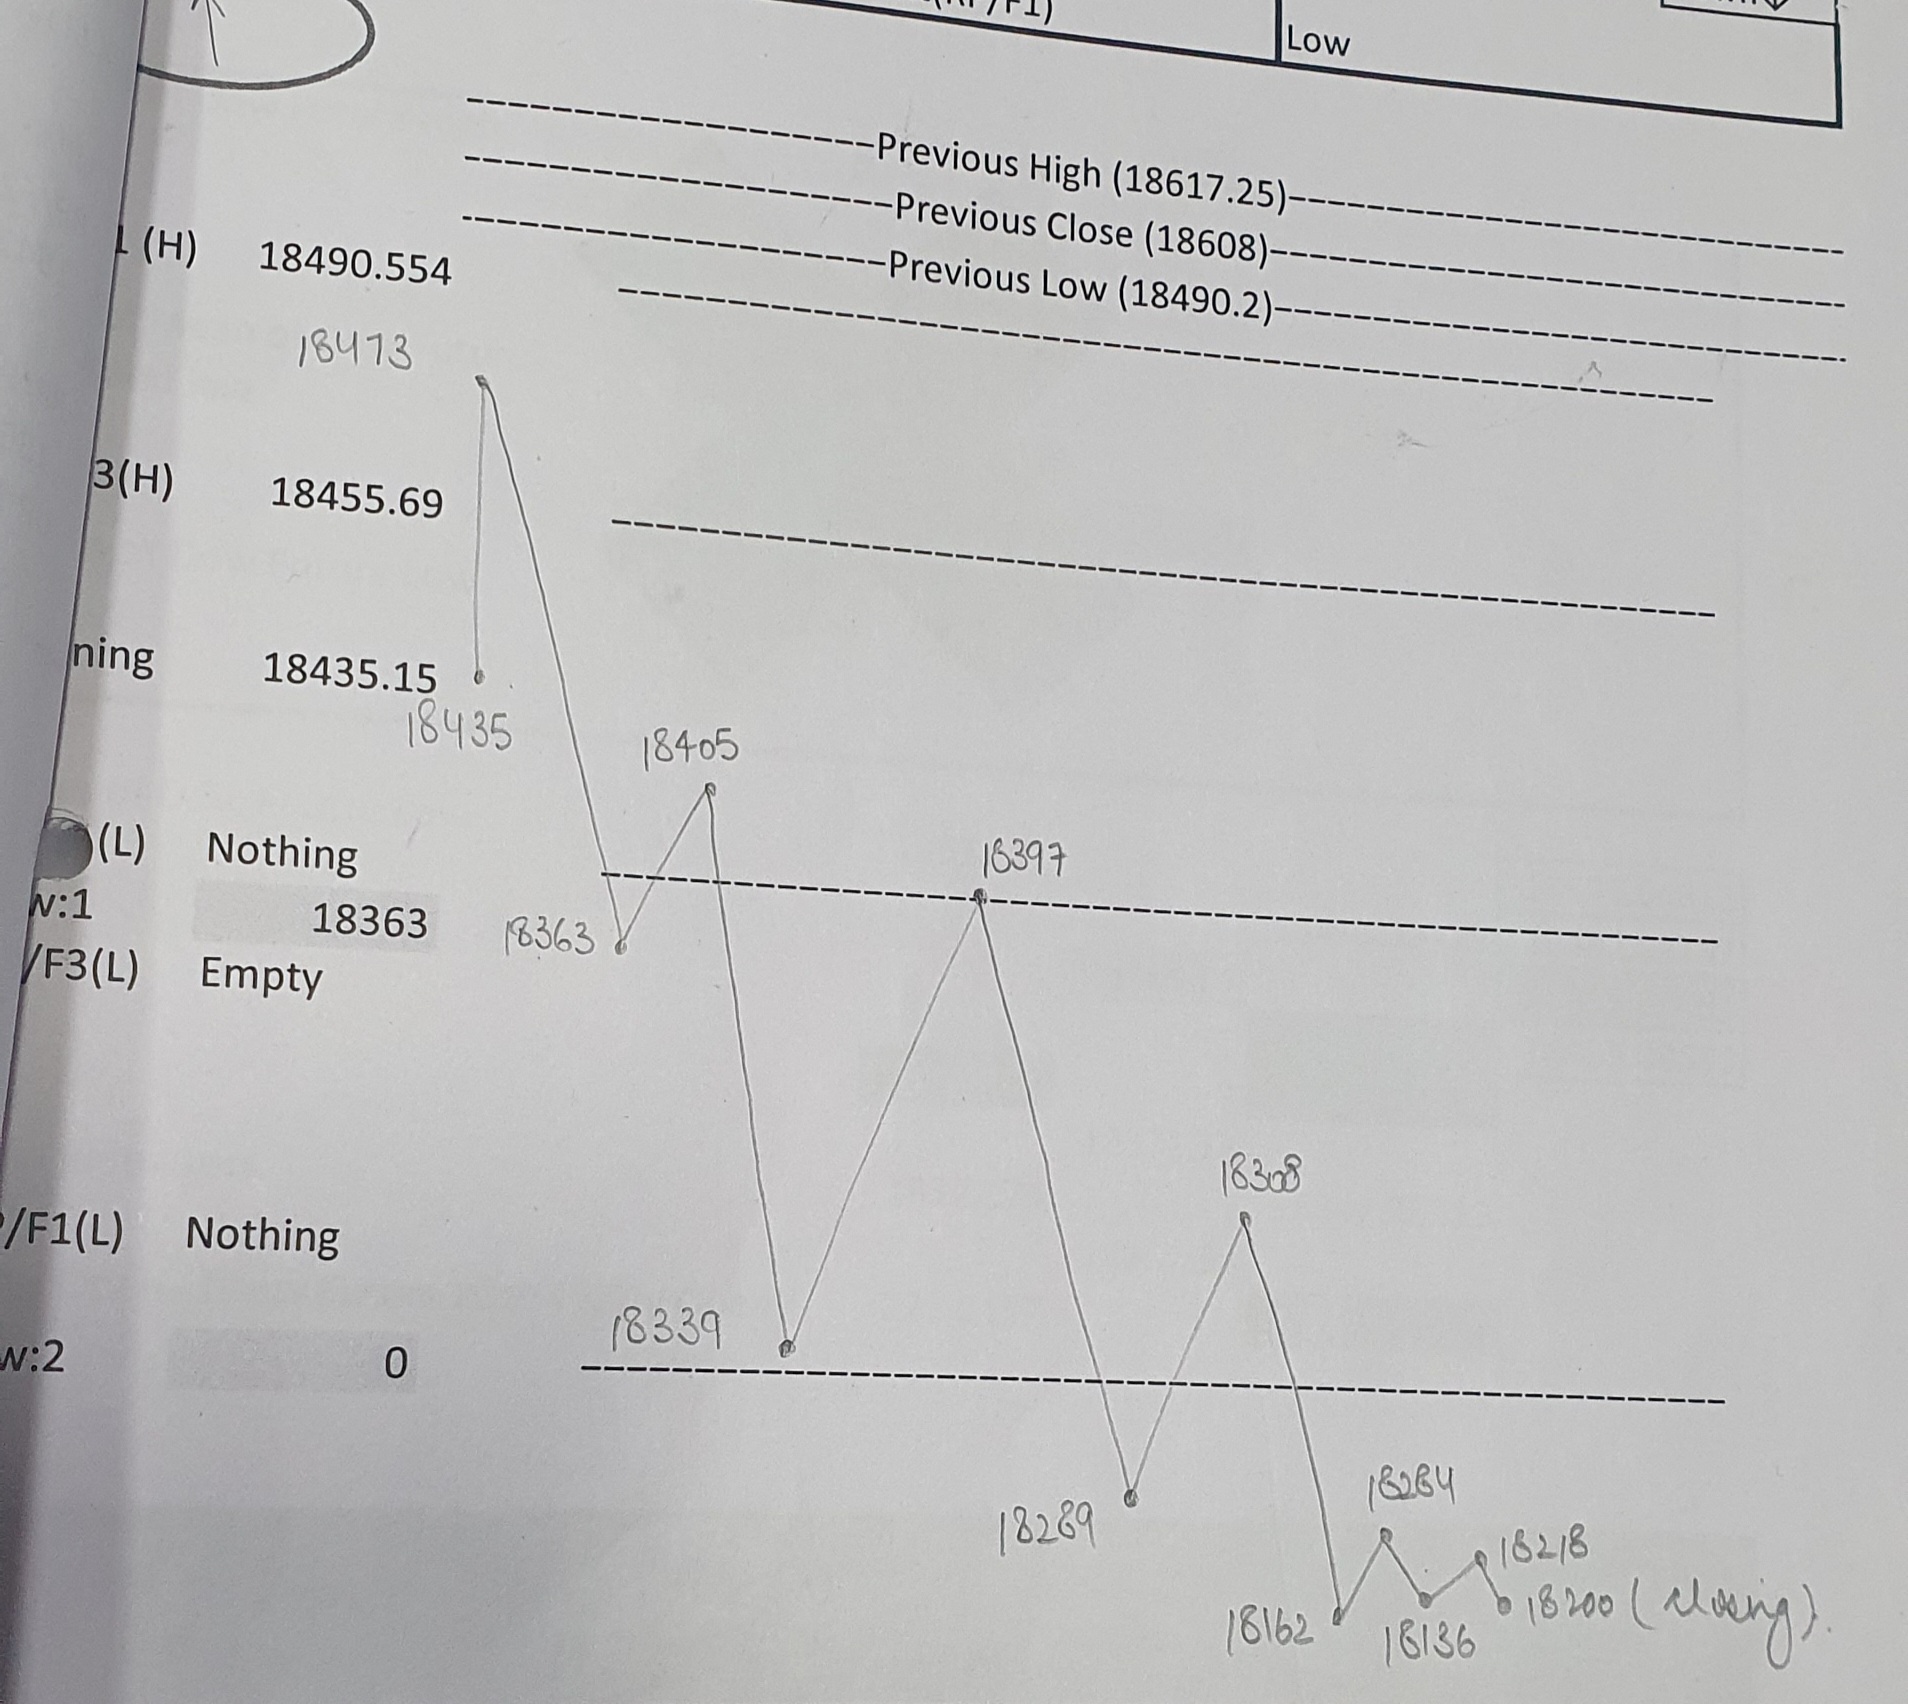 Low
Previous High (18617.25)
Previous Close (18608)
Previous Low (18490.2)
1 (H) 18490.554
18473
3(H) 18455.69
ning 18435.15
18435
18405
(L) Nothing
18397
w:1 18363
18363
/F3(L) Empty
18308
/F1(L) Nothing
18339
w:2 0
18284
18289
18218
18200 (closing).
18162
18136